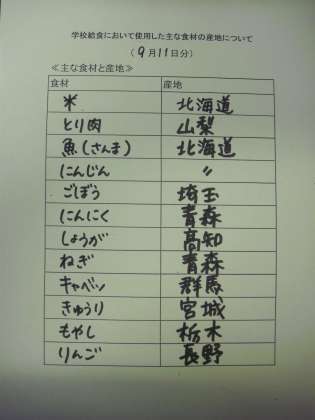 学校給食において使用した主な食材の産地について
(9月11日分)
≪主な食材と産地≫
食材 産地
米 北海道
とり肉 山梨
魚(さんま) 北海道
にんじん 〃
ごぼう 埼玉
にんにく 青森
しょうが 高知
ねぎ 青森
キャベツ 群馬
きゅうり 宮城
もやし 栃木
りんご 長野